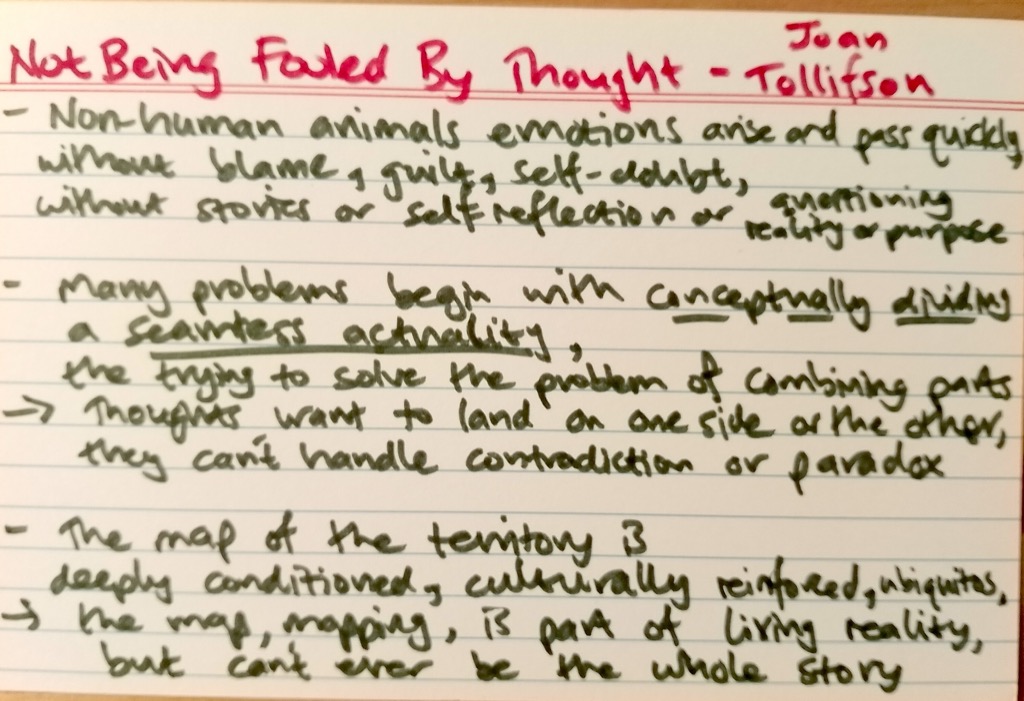 Not Being Fooled By Thought - Joan Tollifson
- Non-human animals emotions arise and pass quickly,
without blame, guilt, self-doubt,
without stories or self reflection or questioning
reality or purpose
- Many problems begin with conceptually dividing
a seamless actuality,
the trying to solve the problem of combining parts
-> Thoughts want to land on one side or the other,
they can't handle contradiction or paradox
- The map of the territory is
deeply conditioned, culturally reinforced, ubiquitos,
-> the map, mapping, is part of living reality,
but can't ever be the whole story